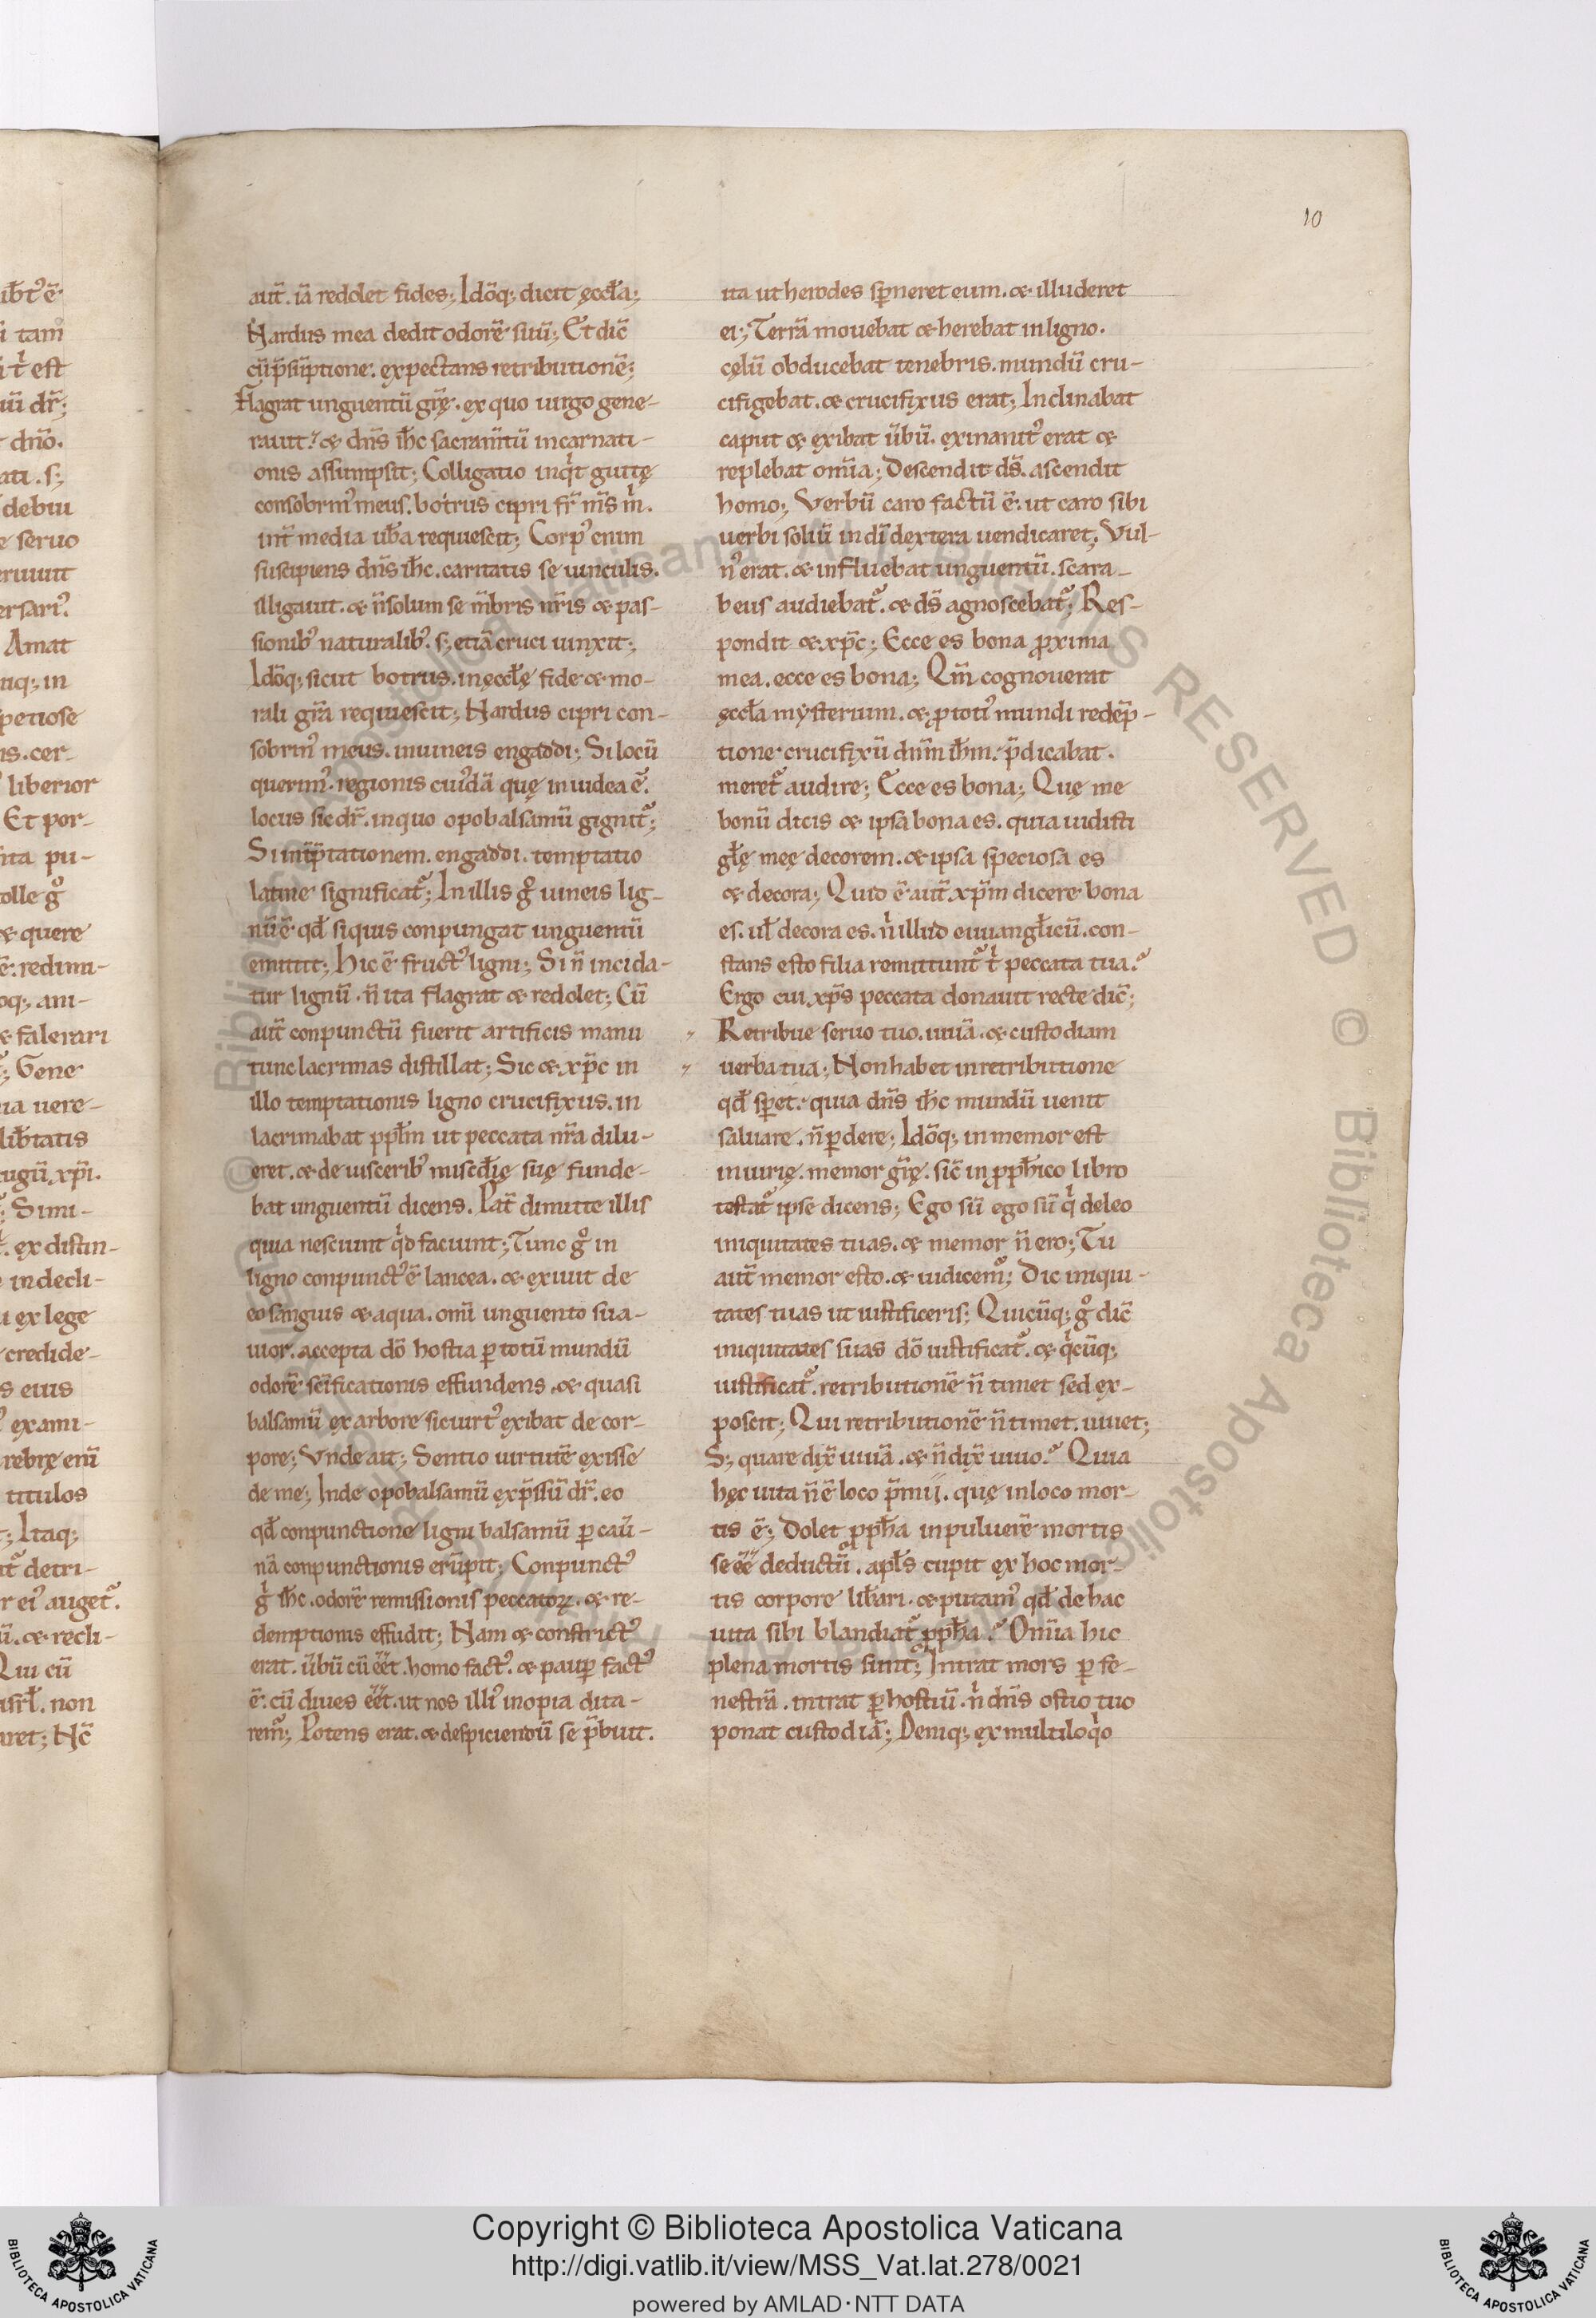 10
aut̄. iā redolet fides; Idōq; dicit ęccłа;
Nardus mea dedit odorē suū; Et dic̄
cū p̄sūptione. expectans retributionē;
Flagrat unguentū gr̄ę. ex quo uirgo gene-
rauit. ⁊ dn̄s ih̄c sacram̄tū incarnati-
onis assumpsit; Colligatio inqͥt guttę
consobrin᾿ meus. botrus cipri fr̄ m̄s m̊.
int̄ media ub̄a requiescit; Corp᾿ enim
suscipiens dn̄s ih̄c. caritatis se uinculis.
illigauit. ⁊ n̄ solum se m̄bris nr̄is ⁊ pas-
sionib᾿ naturalib᾿. s; etiā cruci uinxit;
Idōq; sicut botrus. in ęccłę fide ⁊ mo-
rali gr̄a requiescit; Nardus cipri con-
sobrin᾿ meus. in uineis engaddi; Si locū
querim᾿. regionis cui᾿dā quę in iudea ē.
locus sic dr̄. in quo opobalsamū gignit᷑;
Si int̄p̄tationem. engaddi. temptatio
latine significat᷑; In illis gͦ uineis lig-
nū ē. qd̄ si quis conpungat unguentū
emittit; Hic ē fruct᾿ ligni; Si n̄ incida-
tur lignū. n̄ ita flagrat ⁊ redolet; Cū
aut̄ conpunctū fuerit artificis manu
tunc lacrimas distillat; Sic ⁊ xp̄c in
illo temptationis ligno crucifixus. in
lacrimabat ppłm ut peccata nr̄a dilu-
eret. ⁊ de uiscerib᾿ miscd̄ię suę funde-
bat unguentū dicens. Pat̄ dimitte illis
quia nesciunt qͥd faciunt; Tunc gͦ in
ligno conpunct᾿ ē lancea. ⁊ exiuit de
eo sanguis ⁊ aqua. om̄i unguento sua-
uior. accepta dō hostia ꝑ totū mundū
odorē sc̄ificationis effundens. ⁊ quasi
balsamū ex arbore sic uirt᾿ exibat de cor-
pore; Vnde ait; Sentio uirtutē exisse
de me; Inde opobalsamū exp̄ssū dr̄. eo
qd̄ conpunctione ligni balsamū ꝑ cau̅-
nā conpunctionis erūpit; Conpunct᾿
gͥ ih̄c. odorē remissionis peccatoꝝ. ⁊ re-
demptionis effudit; Nam ⁊ constrict᾿
erat. u̅bū cū eēt. homo fact᾿. ⁊ pauꝑ fact᾿
ē. cū diues eēt. ut nos illi᾿ inopia dita-
rem᷑; Potens erat. ⁊ despiciendū se p̄buit.
ita ut herodes sꝑneret eum. ⁊ illuderet
ei; Terrā mouebat ⁊ herebat in ligno.
cęlū obducebat tenebris. mundū cru-
cifigebat. ⁊ crucifixus erat; Inclinabat
caput ⁊ exibat u̅bū. exinanit᾿ erat ⁊
replebat om̄ia; Descendit ds̄. ascendit
homo; Verbū caro factū ē. ut caro sibi
uerbi soliū in dī dextera uendicaret; Vul-
n᾿ erat. ⁊ influebat unguentū. scara-
beus audiebat᷑. ⁊ ds̄ agnoscebat᷑; Res-
pondit ⁊ xp̄c; Ecce es bona ꝓxima
mea. ecce es bona; Qm̄ cognouerat
ęccłа mysterium. ⁊ ꝓ toti᾿ mundi redēp-
tione crucifixū dn̄m ih̄m. p̄dicabat.
meret᷑ audire; Ecce es bona; Que me
bonū dicis ⁊ ipsa bona es. quia uidisti
głę meę decorem. ⁊ ipsa speciosa es
⁊ decora; Quid ē aut̄ xp̄m dicere bona
es. uł decora es. nͥ illud euuangłicū. con-
stans esto filia remittunt᷑ tͥ peccata tua.
Ergo cui xp̄s peccata donauit recte dic̄;
Retribue seruo tuo. uiuā. ⁊ custodiam
uerba tua; Non habet in retributione
qd̄ sꝑet. quia dn̄s ih̄c mundū uenit
saluare. n̄ ꝑdere; Idōq; in memor est
iniurię. memor gr̄ę. sic̄ in ꝓph̄ico libro
testat᷑ ipse dicens; Ego sū ego sū qͥ deleo
iniquitates tuas. ⁊ memor n̄ ero; Tu
aut̄ memor esto. ⁊ iudicem᷑; Dic iniqui-
tates tuas ut iustificeris; Quicūq; gͦ dic̄
iniquitates suas dō iustificat᷑. ⁊ qͥcūq;
iustificat᷑. retributionē n̄ timet sed ex-
poscit; Qui retributionē n̄ timet. uiuet;
S; quare dix̄ uiuā. ⁊ n̄ dix̄ uiuo. Quia
hęc uita n̄ ē loco p̄mij. quę in loco mor-
tis ē; Dolet ꝓph̄a in puluerē mortis
se eē deductū. apłs cupit ex hoc mor-
tis corpore lib̄ari. ⁊ putam᾿ qd̄ de hac
uita sibi blandiat᷑ ꝓph̄a. Om̄ia hic
plena mortis sunt; Intrat mors ꝑ fe-
nestrā. intrat ꝑ hostiū. nͥ dn̄s ostio tuo
ponat custodiā; Deniq; ex multiloqͥo
Copyright © Biblioteca Apostolica Vaticana
http://digi.vatlib.it/view/MSS_Vat.lat.278/0021
powered by AMLAD·NTT DATA
BIBLIOTECA APOSTOLICA VATICANA
BIBLIOTECA APOSTOLICA VATICANA